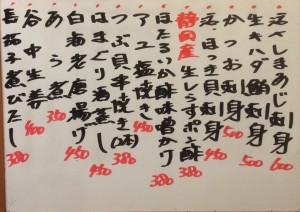 活〆しまあじ刺身 600
生キハダ鮪刺身 500
かつお刺身 500
活ほっき貝刺身 450
静岡産生しらすポン酢 380
ほたるいか酢味噌かけ 380
アユ塩焼き 450
つぶ貝串焼き(2本) 380
はまぐり酒蒸し 450
白海老唐揚げ 450
あら煮 350
谷中生姜 400
長茄子煮びたし 380